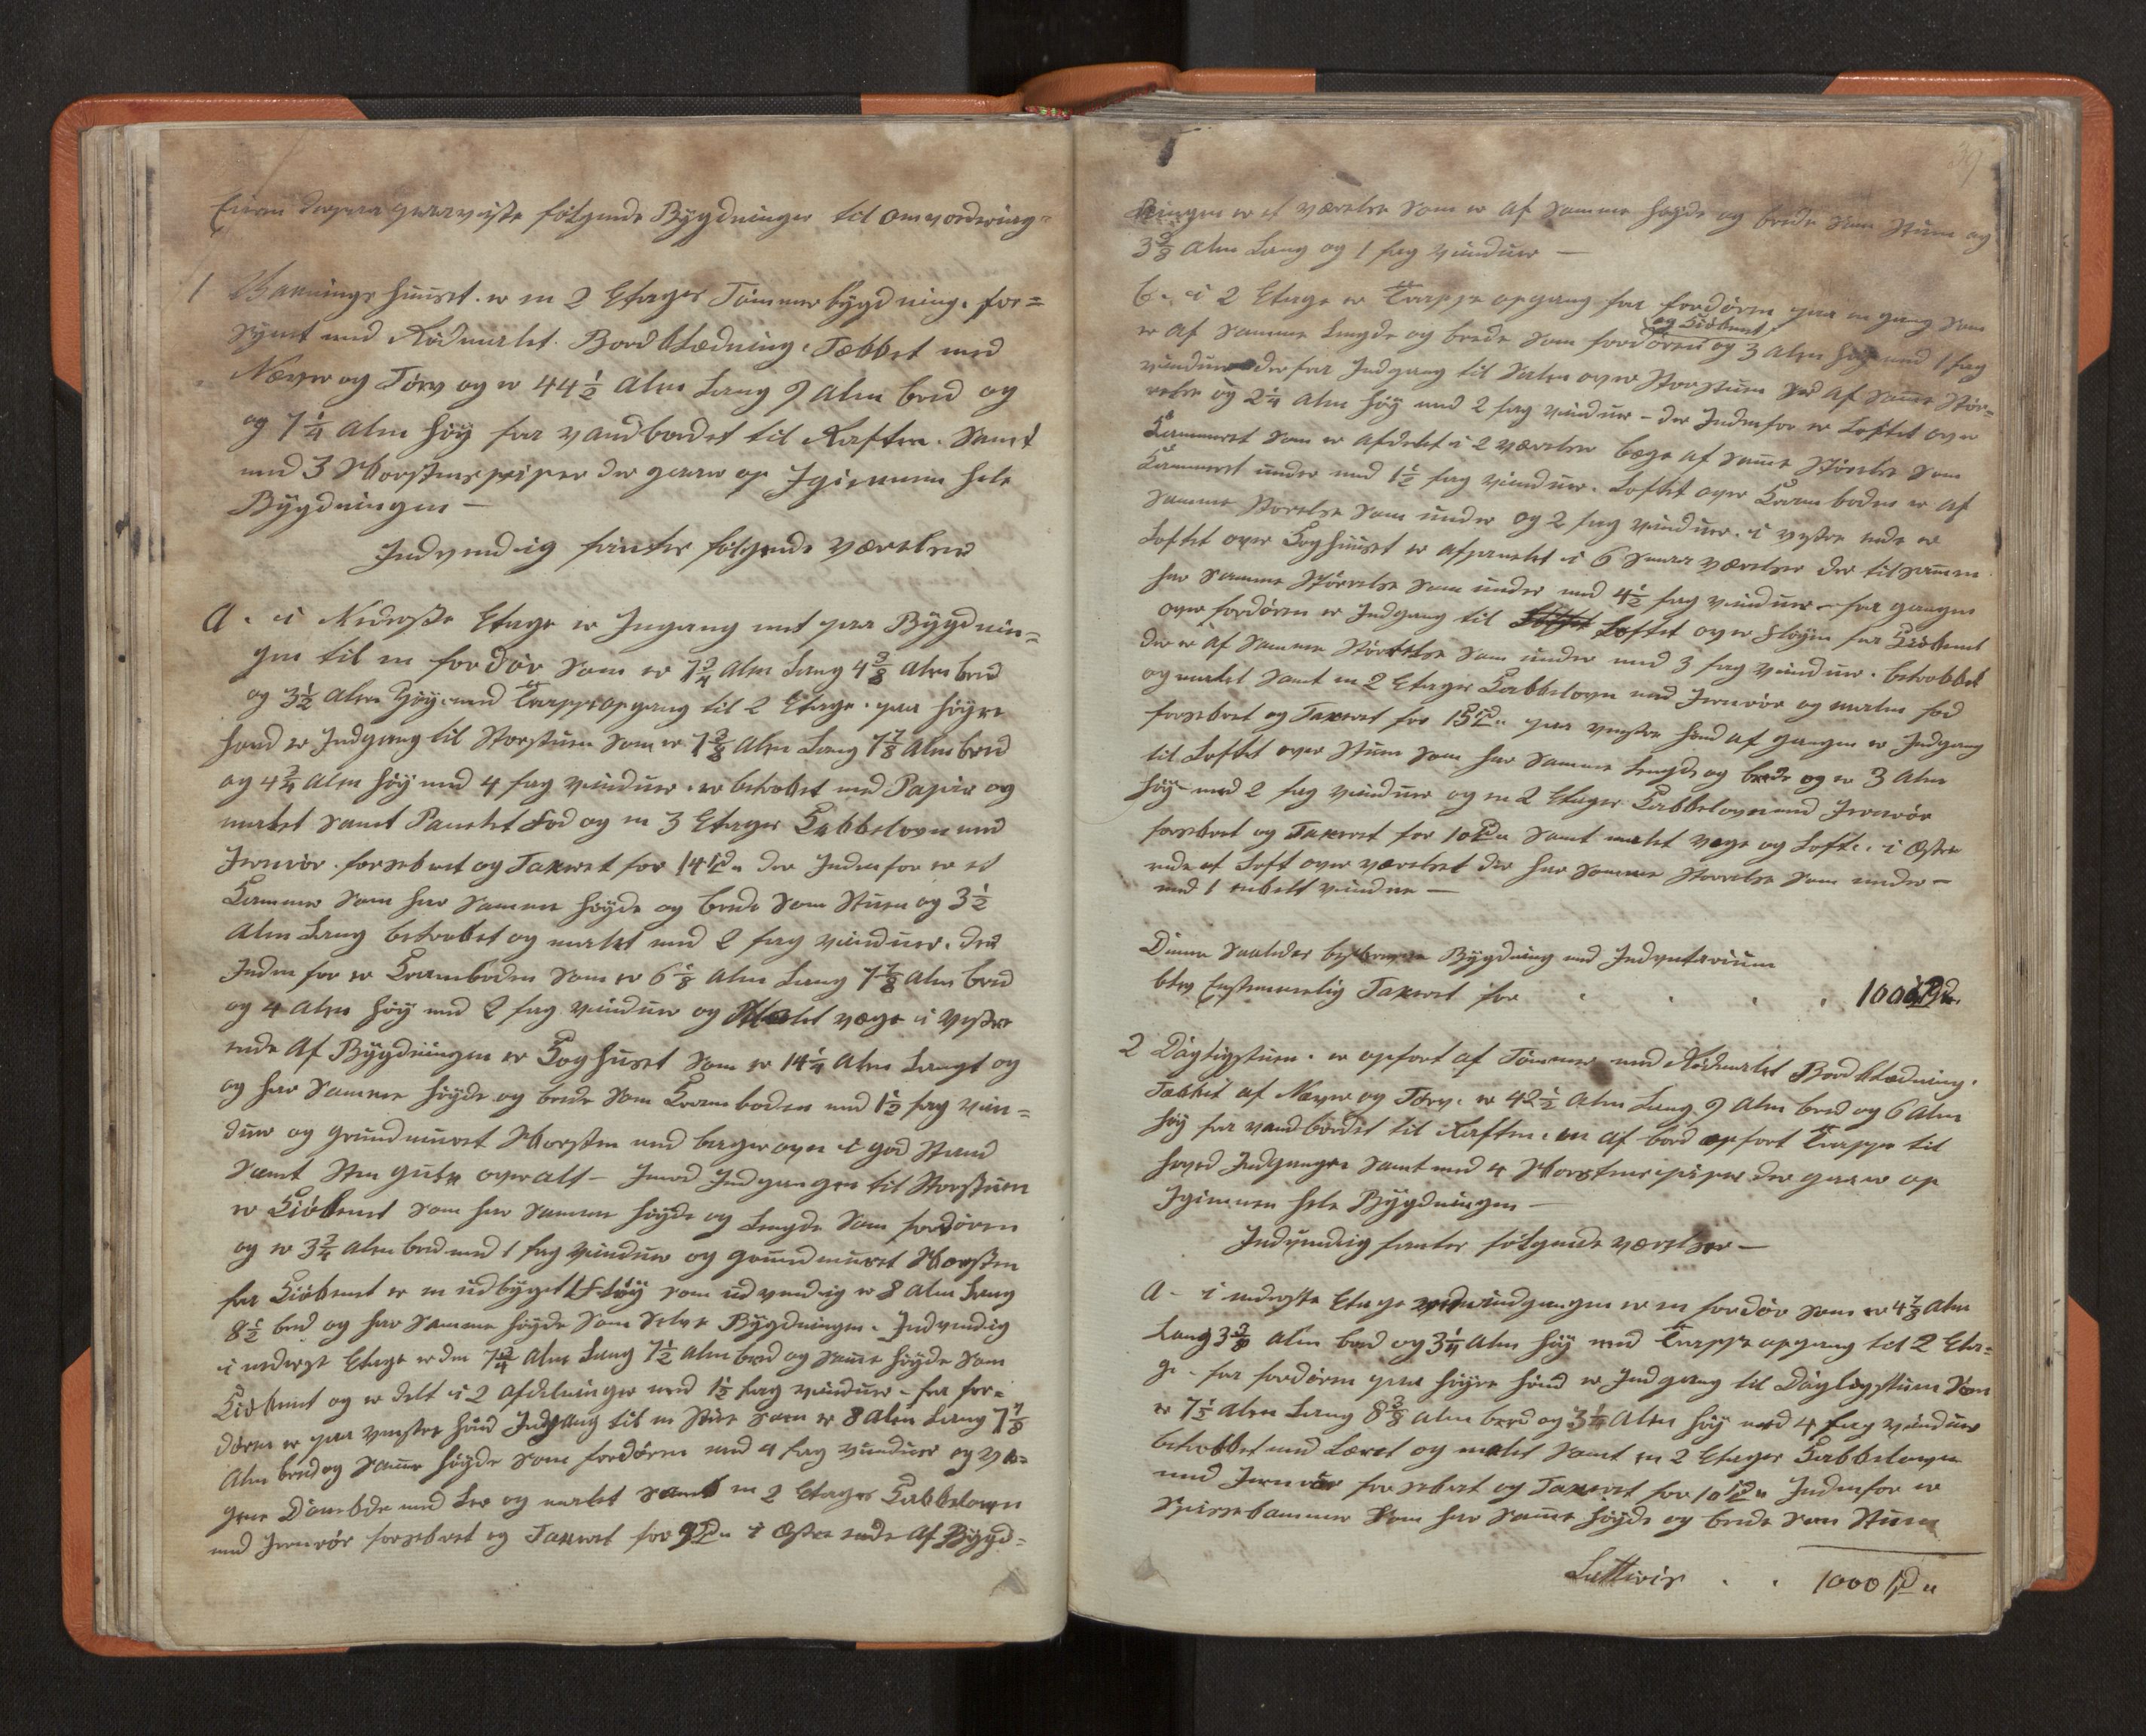 Eieren derpaa paaviiste følgende Bygdninger til omvordering
1 Vaanings huuset. er en 2 Etages Tømmerbygdning. for=
synet med Rødmalet. Bordklædning. Tækket med
Næver og Törv og er 44½ Alen Lang 9 Alen bred og
og 7¼ Alen høy fra vandbordet til Raften. Samt
med 3 Skorsteenspiper der gaaer op Igienem hele
Bygdningen —
Indvendig fantes følgende værelser
a. i Nederste Etage er Ingang mit paa Bygdnin=
gen til en fordør som er 7¾ Alen Lang 4⅜ Alen bred
og 3½ Alen Høy. med Trappeopgang til 2 Etage. paa høyre
haand er Indgang til Storstuen som er 7⅜ Alen Lang 7⅞ Alen bred
og 4¾ Alen høy med 4 fag vinduer. er betrækket med Papir og
malet samt Panelet Fod og en 3 Etages Kakkelovn med
Jernrör forsekret og Taxeret for 14 Spd. der Indenfor er et
Kammer som har samme høyde og brede som Stuen og 3½
Alen Lang betrækket og malet med 2 fag vinduer. der
Inden for er Kramboden som er 6⅛ Alen Lang 7⅞ Alen bred
og 4 Alen høy med 2 fag vinduer og Malet væge i vestre
ende Af Bygdningen er Koghuset som er 14¼ Alen Langt og
og har samme høyde og brede som Kramboden med 1½ fag vin=
duer og grundmuret Skorsten med bagerovn i god Stand
samt Sten gulv overalt — Imod Indgangen til Storstuen
er Kiökenet som har samme høyde og Lengde som fordøren
og er 3¾ Alen bred med 1 fag vinduer og grundmuret Skorsten
fra Kiökenet er en udbyget Fløy som udvendig er 8 Alen Lang
8½ bred og har samme høyde som selve Bygdningen. Indvendig
i nederste Etage er den 7¾ Alen Lang 7½ Alen bred og same høyde som
Kiökenet og er delt i 2 Afdelninger med 1½ fag vinduer — fra for=
døren er paa venstre haand Indgang til en Stue som er 8 Alen Lang 7⅞
Alen bred og same høyde som fordøren med 4 fag vinduer og væ=
gene med Ler og malet samt en 2 Etages Kakkelovn
med Jernrör forsekret og Taxeret for 9 Spd. i Østre ende Af Bygd=
39
ningen er et værelse som er af samme høyde og brede som Stuen og
3⅜ Alen Lang og 1 fag vinduer —
b. i 2 Etage er Trappe opgang fra fordøren paa en gang som
og Kiökenet
er af samme Lengde og brede som fordøren og 3 Alen høy med 1 fag
vinduer der fra Indgang til Salen over Storstuen som er af same Stör=
relse og 2¼ Alen høy med 2 fag vinduer — der Indenfor er Loftet over
Kammeret som er afdelet i 2 værelser begge af same Störelse som
Kammeret under med 1½ fag vinduer. Loftet over Kramboden er af
samme Storelse som under og 2 fag vinduer. i vestre ende er
Loftet over Koghuuset er afpanelet i 6 smaa værelser der tilsamen
har samme Störrelse som under med 4½ fag vinduer — fra gangen
over fordøren er Indgang til Loftet Loftet over Fløyen fra Kiökenet
der er af samme Störrelse som under med 3 fag vinduer. betrækket
og malet samt en 2 Etages Kakkelovn med Jernrör og malen fod
forsekret og Taxeret for 15 Spd. paa venstre haand af gangen er Indgang
til Loftet over Stuen som har samme Lengde og brede og er 3 Alen
høy med 2 fag vinduer og en 2 Etages Kakkelovn med Jernrör
forsekret og Taxeret for 10 Spd. samt malet væge og Loft. i Østre
ende af Loft over værelset der har samme Storrelse som under —
med 1 enkelt vindue —
Denne saaledes beskrevne Bygdning med Indventarium
blev Enstemmelig Taxeret for . . . . 1000 Spd.
2 Dagligstuen. er opført af Tömmer med Rödmalet Bordklædning.
Tækket af Næver og Törv. er 42½ Alen Lang 9 Alen bred og 6 Alen
høy fra vandbordet til Raften. en af bord opført Trappe til
hoved Indgangen samt med 4 Skorstenspiper der gaaer op
Igienem hele Bygdningen —
Indvendig fantes følgende værelser —
a — i nederste Etage ved indgangen er en fordør som er 4⅞ Alen
Lang 3⅜ Alen bred og 3¼ Alen høy med Trappe opgang til 2 Eta=
ge — fra fordøren paa høyre haand er Indgang til Dagligstuen som
er 7½ Alen Lang 8⅜ Alen bred og 3¼ Alen høy med 4 fag vinduer
betrækket med Læret og malet samt en 2 Etages Kakkelovn
med Jernrör forsekret og Taxeret for 10 Spd. Indenfor er
Spissekammer som har same høyde og brede som Stuen
Lattiris . . 1000 Spd.